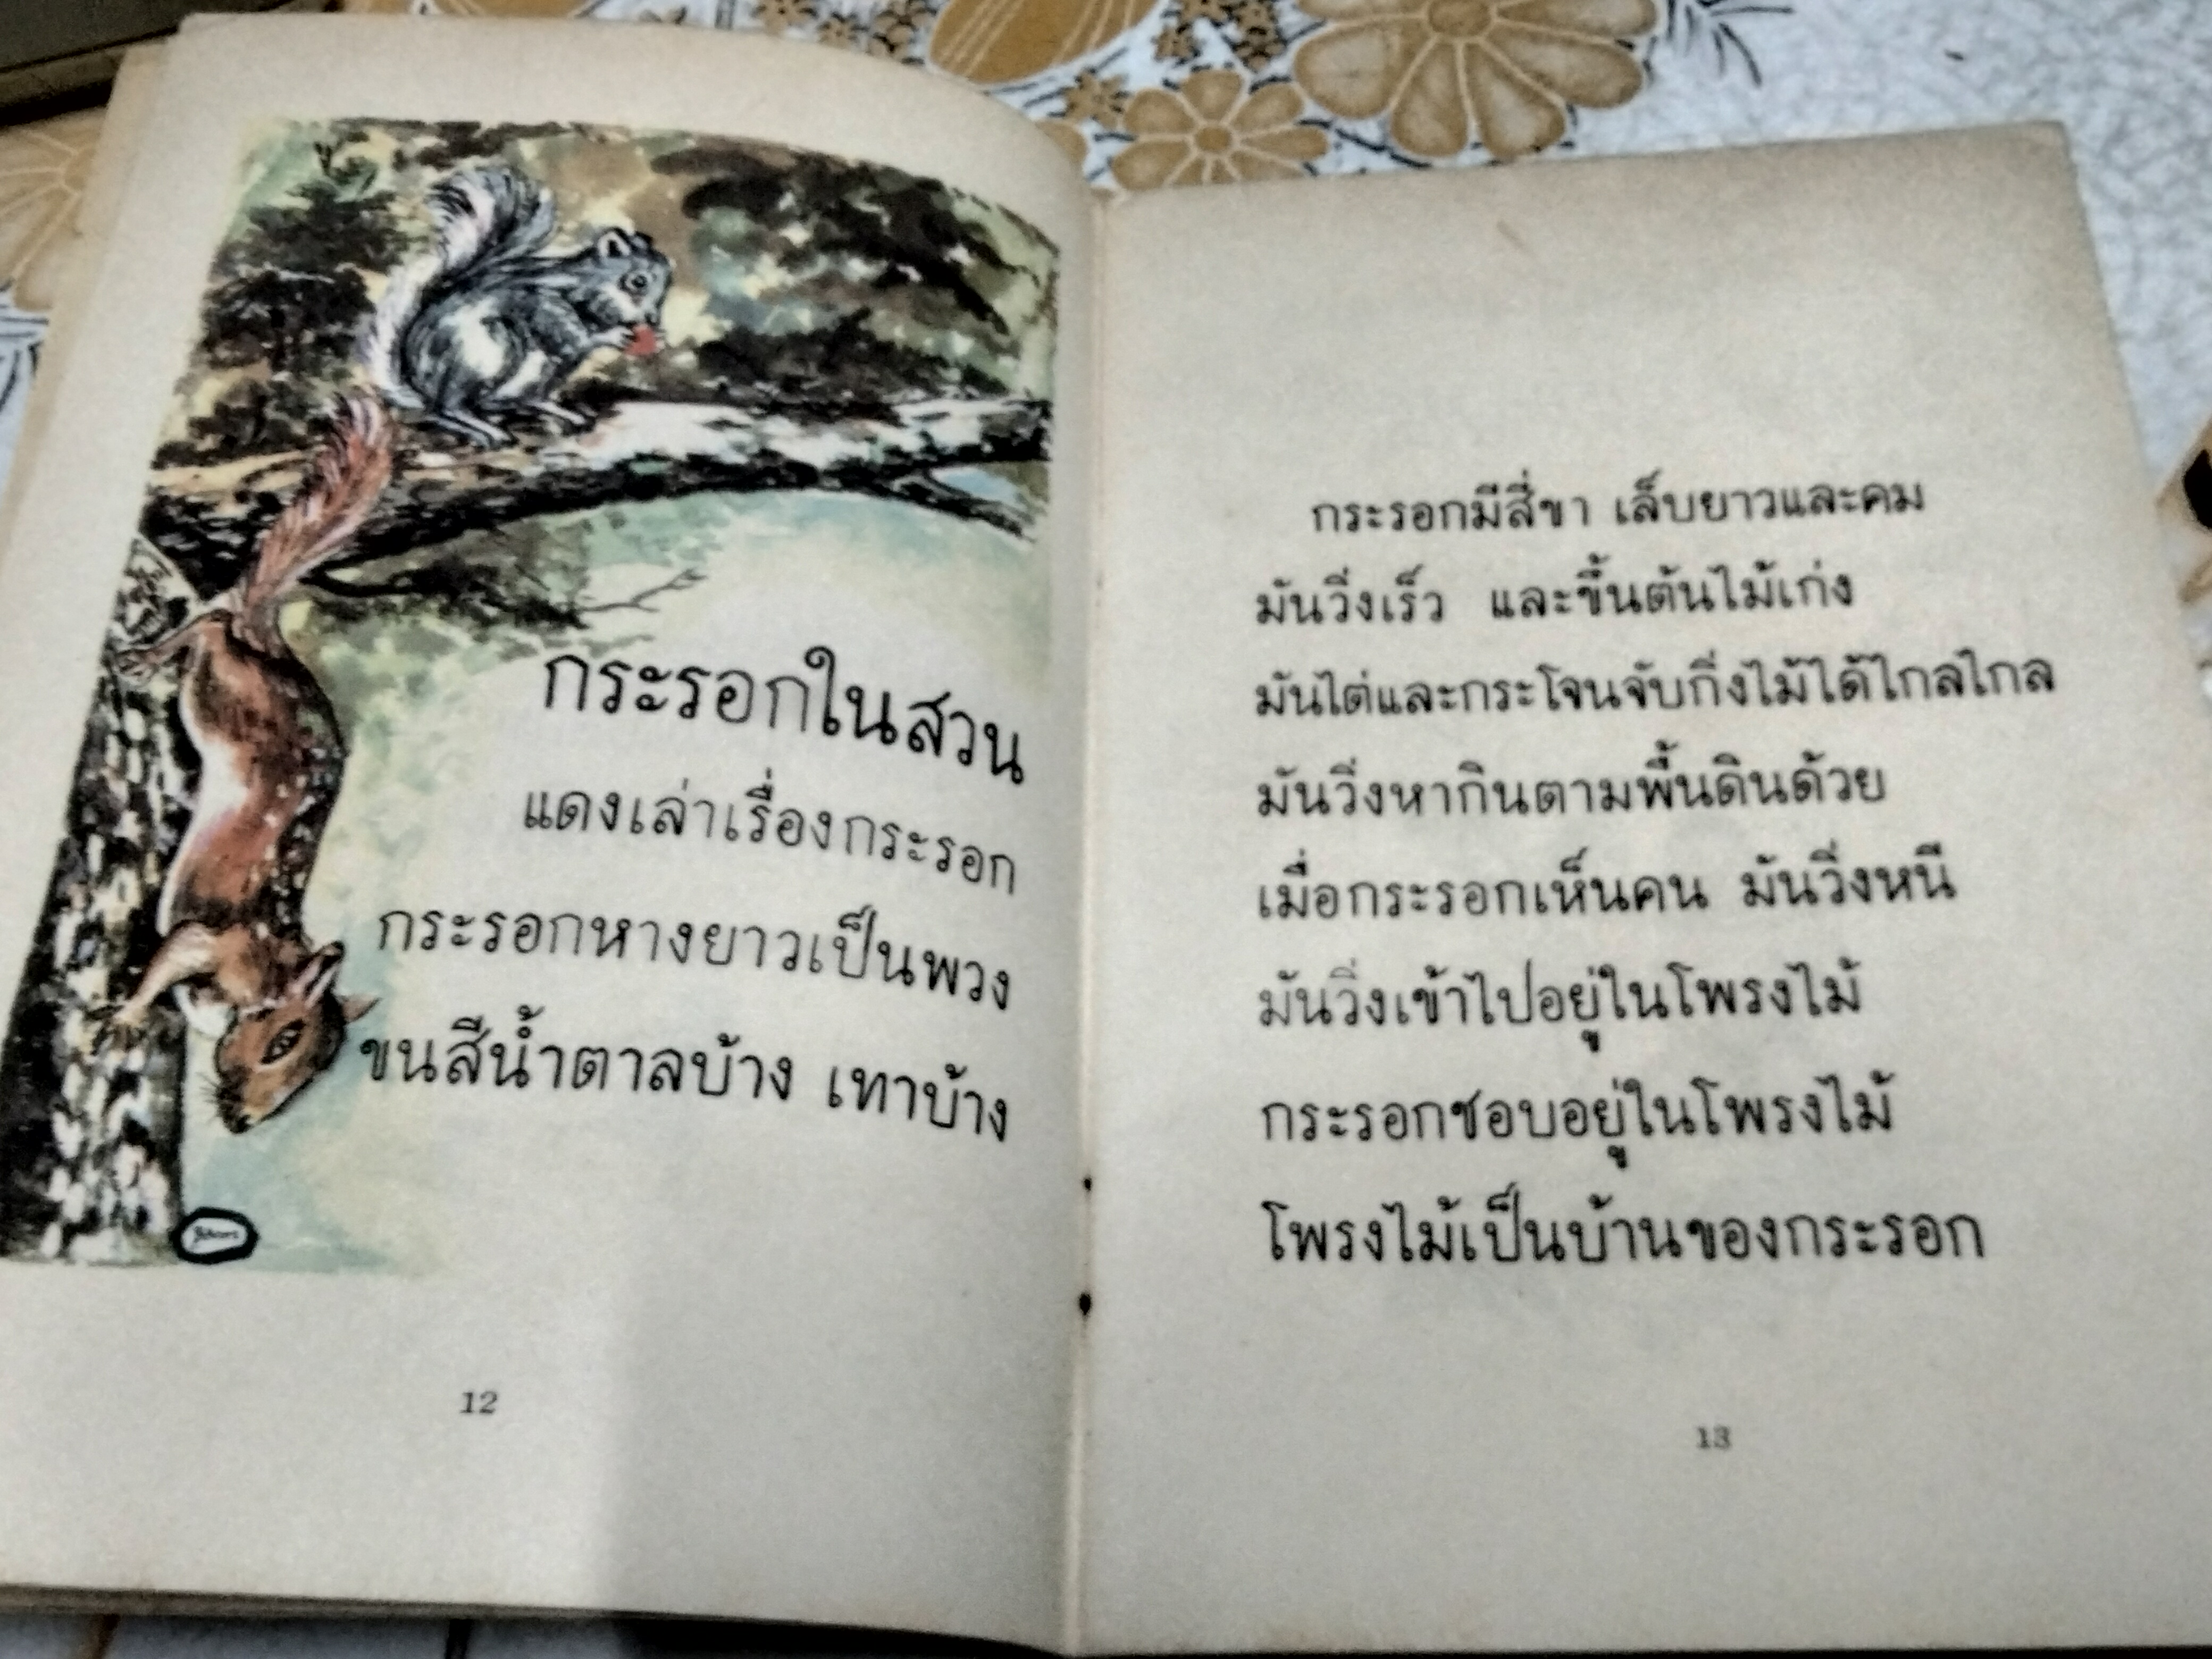 กระรอกในสวน
แดงเล่าเรื่องกระรอก
กระรอกหางยาวเป็นพวง
ขนสีน้ำตาลบ้าง เทาบ้าง
12
กระรอกมีสี่ขา เล็บยาวและคม
มันวิ่งเร็ว และขึ้นต้นไม้เก่ง
มันไต่และกระโจนจับกิ่งไม้ได้ไกลไกล
มันวิ่งหากินตามพื้นดินด้วย
เมื่อกระรอกเห็นคน มันวิ่งหนี
มันวิ่งเข้าไปอยู่ในโพรงไม้
กระรอกชอบอยู่ในโพรงไม้
โพรงไม้เป็นบ้านของกระรอก
13